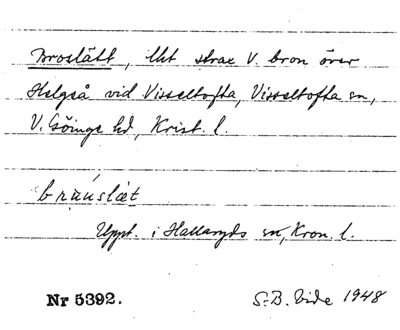 Broslätt, lht strax V. bron över
Helgeå vid Visseltofta, Visseltofta sn,
V. Göinge hd, Krist. l.
bräuslæt
Uppt. i Hallaryds sn, Kron. l.
Nr 5392. S.-B. Vide 1948